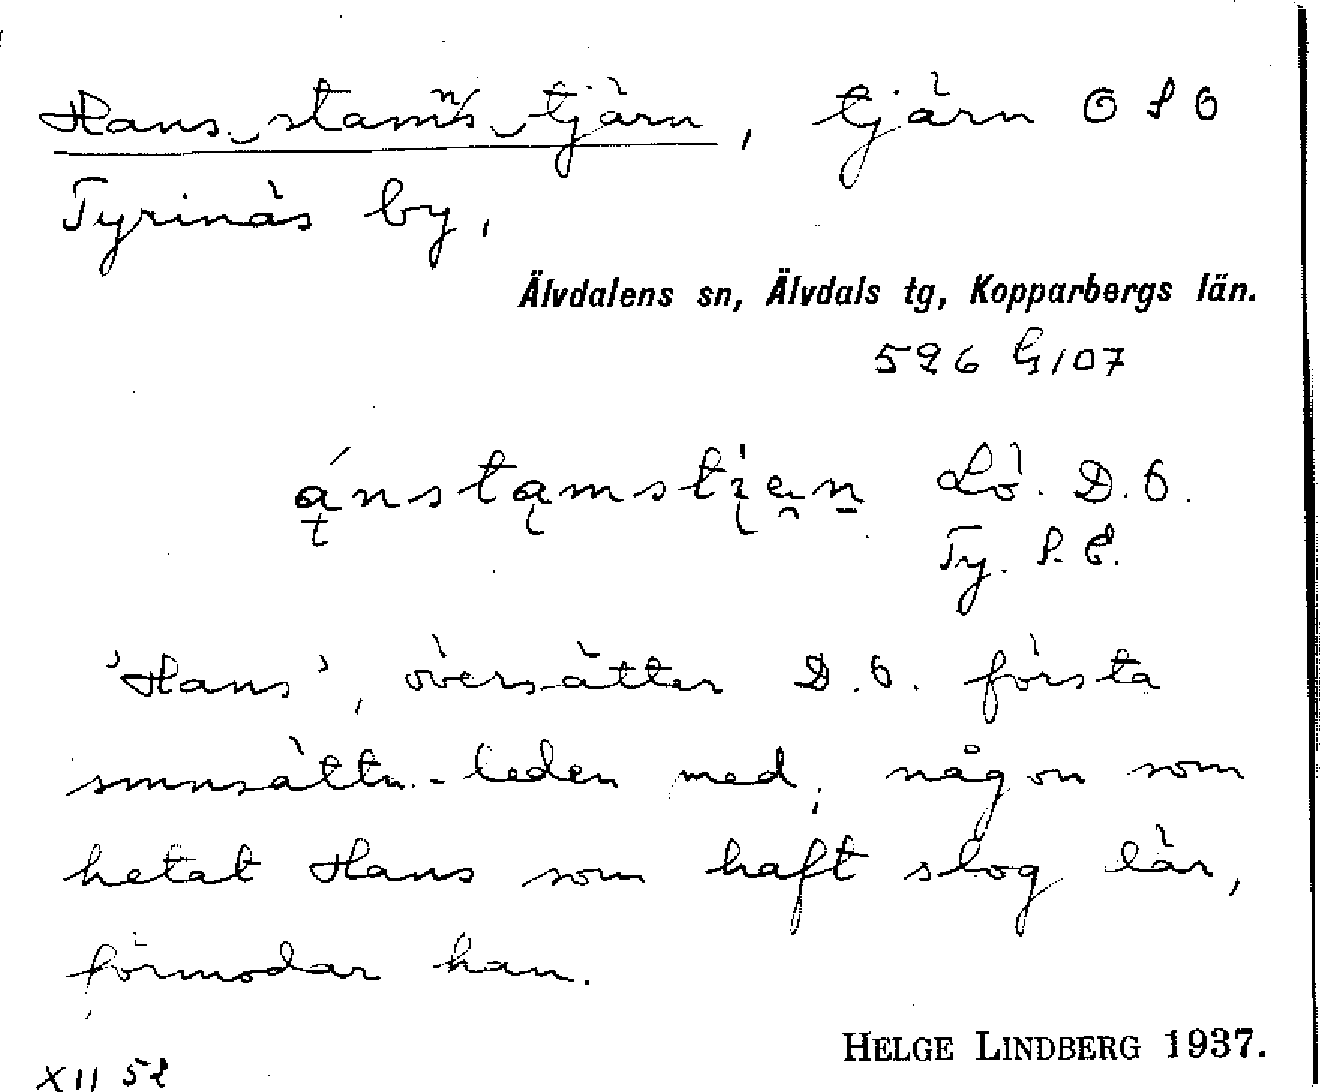 Hans stamns tjärn, tjärn O S O
Tyrinäs by,
Älvdalens sn, Älvdals tg, Kopparbergs län.
596 G107
Lö. D.O.
Ty. P.E.
'Hans', översätter D.O. första
smnsättn.-leden med; någon som
hetat Hans som haft slog där,
förmodar han.
HELGE LINDBERG 1937.
XII 52